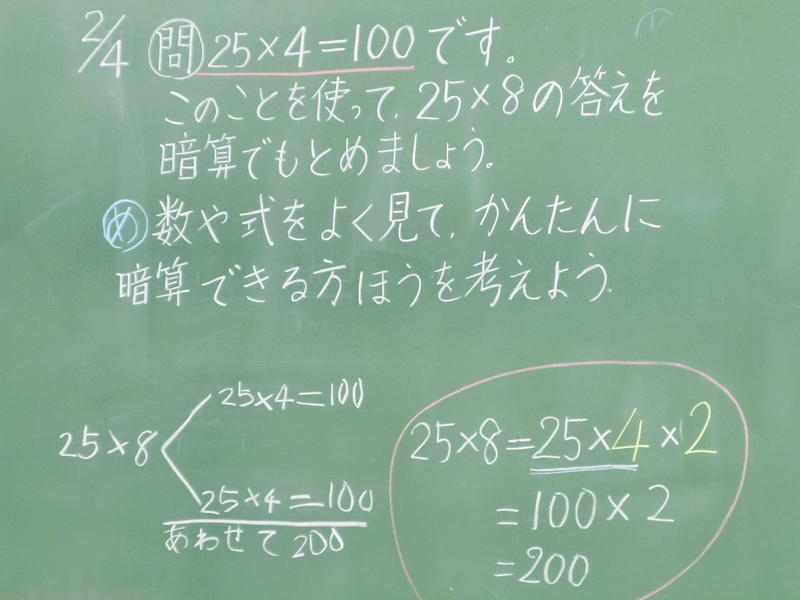 2/4 問 25×4=100です。
このことを使って、25×8の答えを
暗算でもとめましょう。
め 数や式をよく見て、かんたんに
暗算できる方ほうを考えよう.
25×8
25×4=100
25×4=100
あわせて200
25×8=25×4×2
=100×2
=200